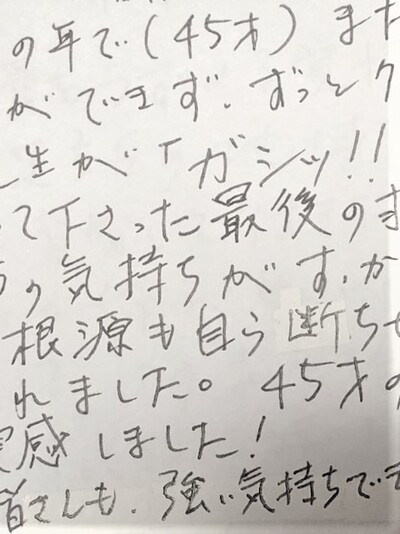 の年で(45才)また
ができず、ずっとク
生が「ガシッ!!
って下さった最後のま
の気持ちがす、か
根源も自ら断ちセ
れました。45才の
実感しました!
皆さんも、強い気持ちで